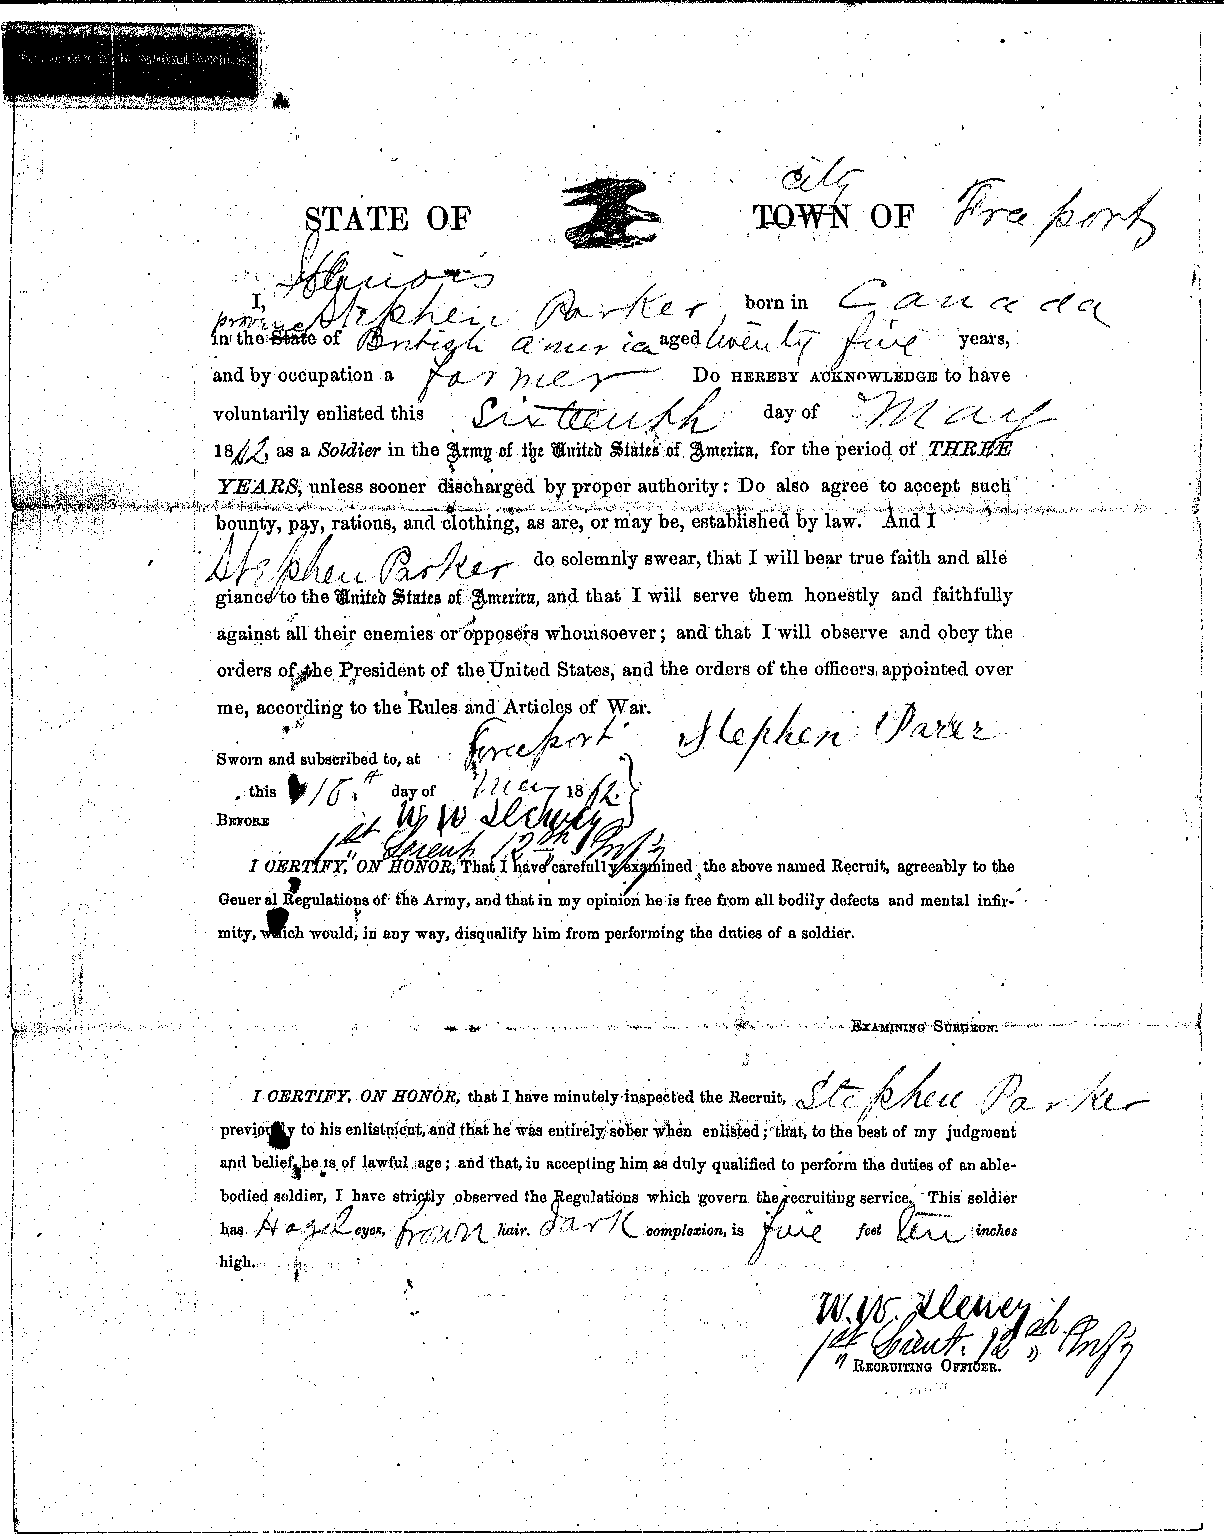 city
STATE OF TOWN OF Freeport
Illinois
I, Stephen Parker born in Canada
in the State of British America aged twenty five years,
and by occupation a farmer Do HEREBY ACKNOWLEDGE to have
voluntarily enlisted this Sixteenth day of May
1862, as a Soldier in the Army of the United States of America, for the period of THREE
YEARS, unless sooner discharged by proper authority: Do also agree to accept such
bounty, pay, rations, and clothing, as are, or may be, established by law. And I
Stephen Parker do solemnly swear, that I will bear true faith and alle
giance to the United States of America, and that I will serve them honestly and faithfully
against all their enemies or opposers whomsoever; and that I will observe and obey the
orders of the President of the United States, and the orders of the officers appointed over
me, according to the Rules and Articles of War.
Stephen Parer
Sworn and subscribed to, at Freeport
this day of May 1862.
BEFORE W W
1st Lieut 12th Infy
I CERTIFY, ON HONOR, That I have carefully examined the above named Recruit, agreeably to the
General Regulations of the Army, and that in my opinion he is free from all bodily defects and mental infir-
mity, which would, in any way, disqualify him from performing the duties of a soldier.
EXAMINING SURGEON.
I CERTIFY, ON HONOR, that I have minutely inspected the Recruit, Stephen Parker
previously to his enlistment, and that he was entirely sober when enlisted; that, to the best of my judgment
and belief, he is of lawful age; and that, in accepting him as duly qualified to perform the duties of an able-
bodied soldier, I have strictly observed the Regulations which govern the recruiting service. This soldier
has Hazel eyes, brown hair, dark complexion, is five feet ten inches
high.
W. W.
1st Lieut. 12th Infy
RECRUITING OFFICER.